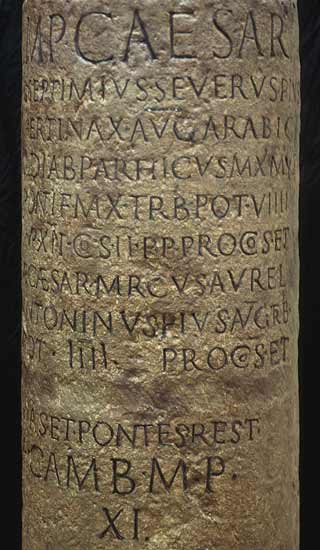 MPCAESAR
SEPTIMIVSSEVERVSPIV
ERTINAXAVGARABIC
DIABPARTHICVSMXMV
ONTIFMXTRBPOTVIIII
MPXII·COSII·PPPROCOSET
CAESARMRCVSAVREL
NTONINVSPIVSAVGRB
OT·IIII· PROCOSET
ASETPONTESREST
CAMB·M·P·
XI.